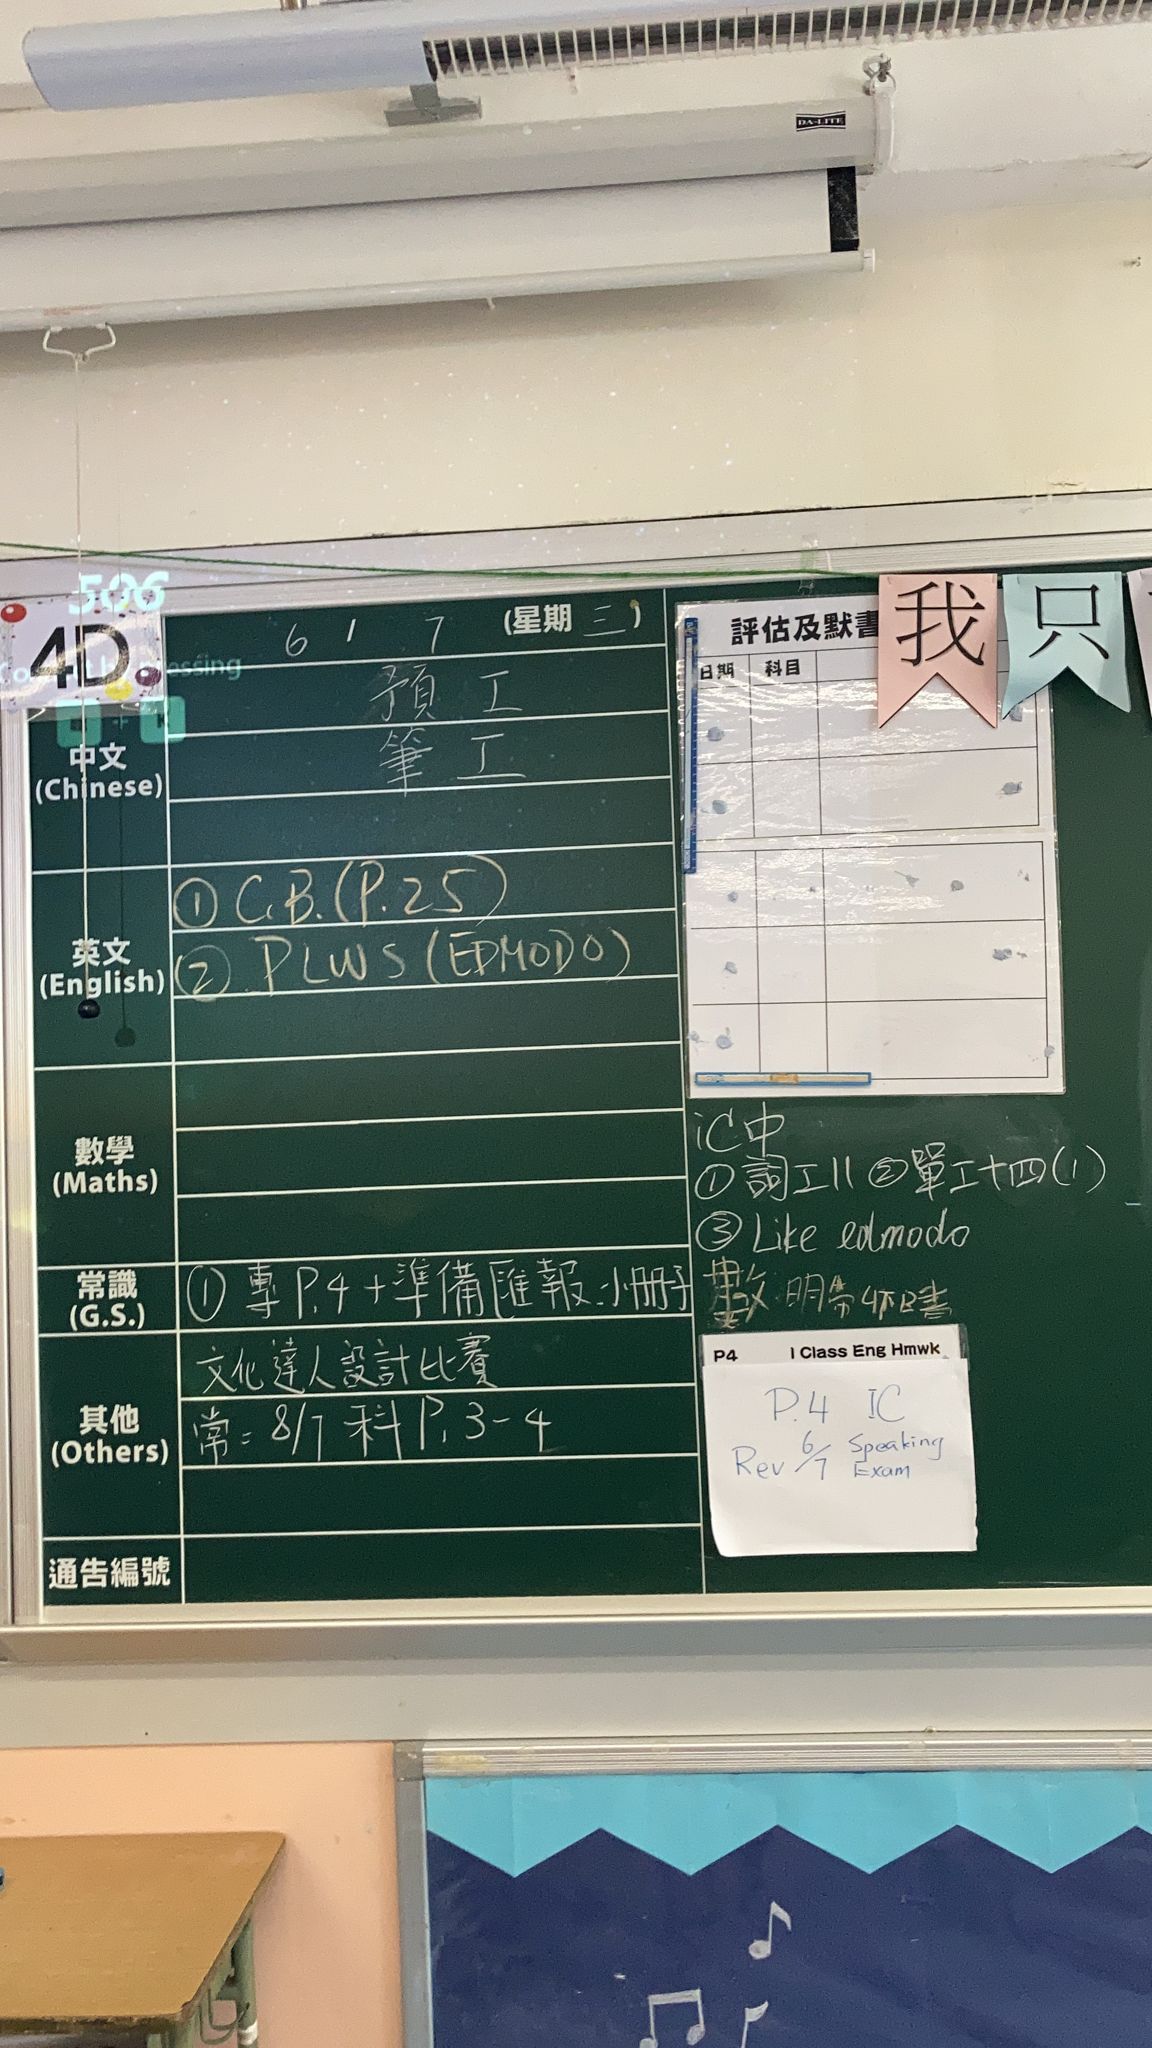 DA-LITE
506
4D
6 / 7 (星期 三)
中文
(Chinese)
預 工
筆 工
英文
(English)
① C.B. (P.25)
② PLWS (EDMODO)
數學
(Maths)
常識
(G.S.)
① 專 P.4 + 準備匯報:小冊子
其他
(Others)
文化達人設計比賽
常: 8/7 科 P. 3-4
通告編號
評估及默書
日期 科目
我 只
iC中
① 詞工11 ② 單工十四(1)
③ Like edmodo
數 明帶
P4 I Class Eng Hmwk
P.4 IC
Rev 6/7 Speaking
Exam